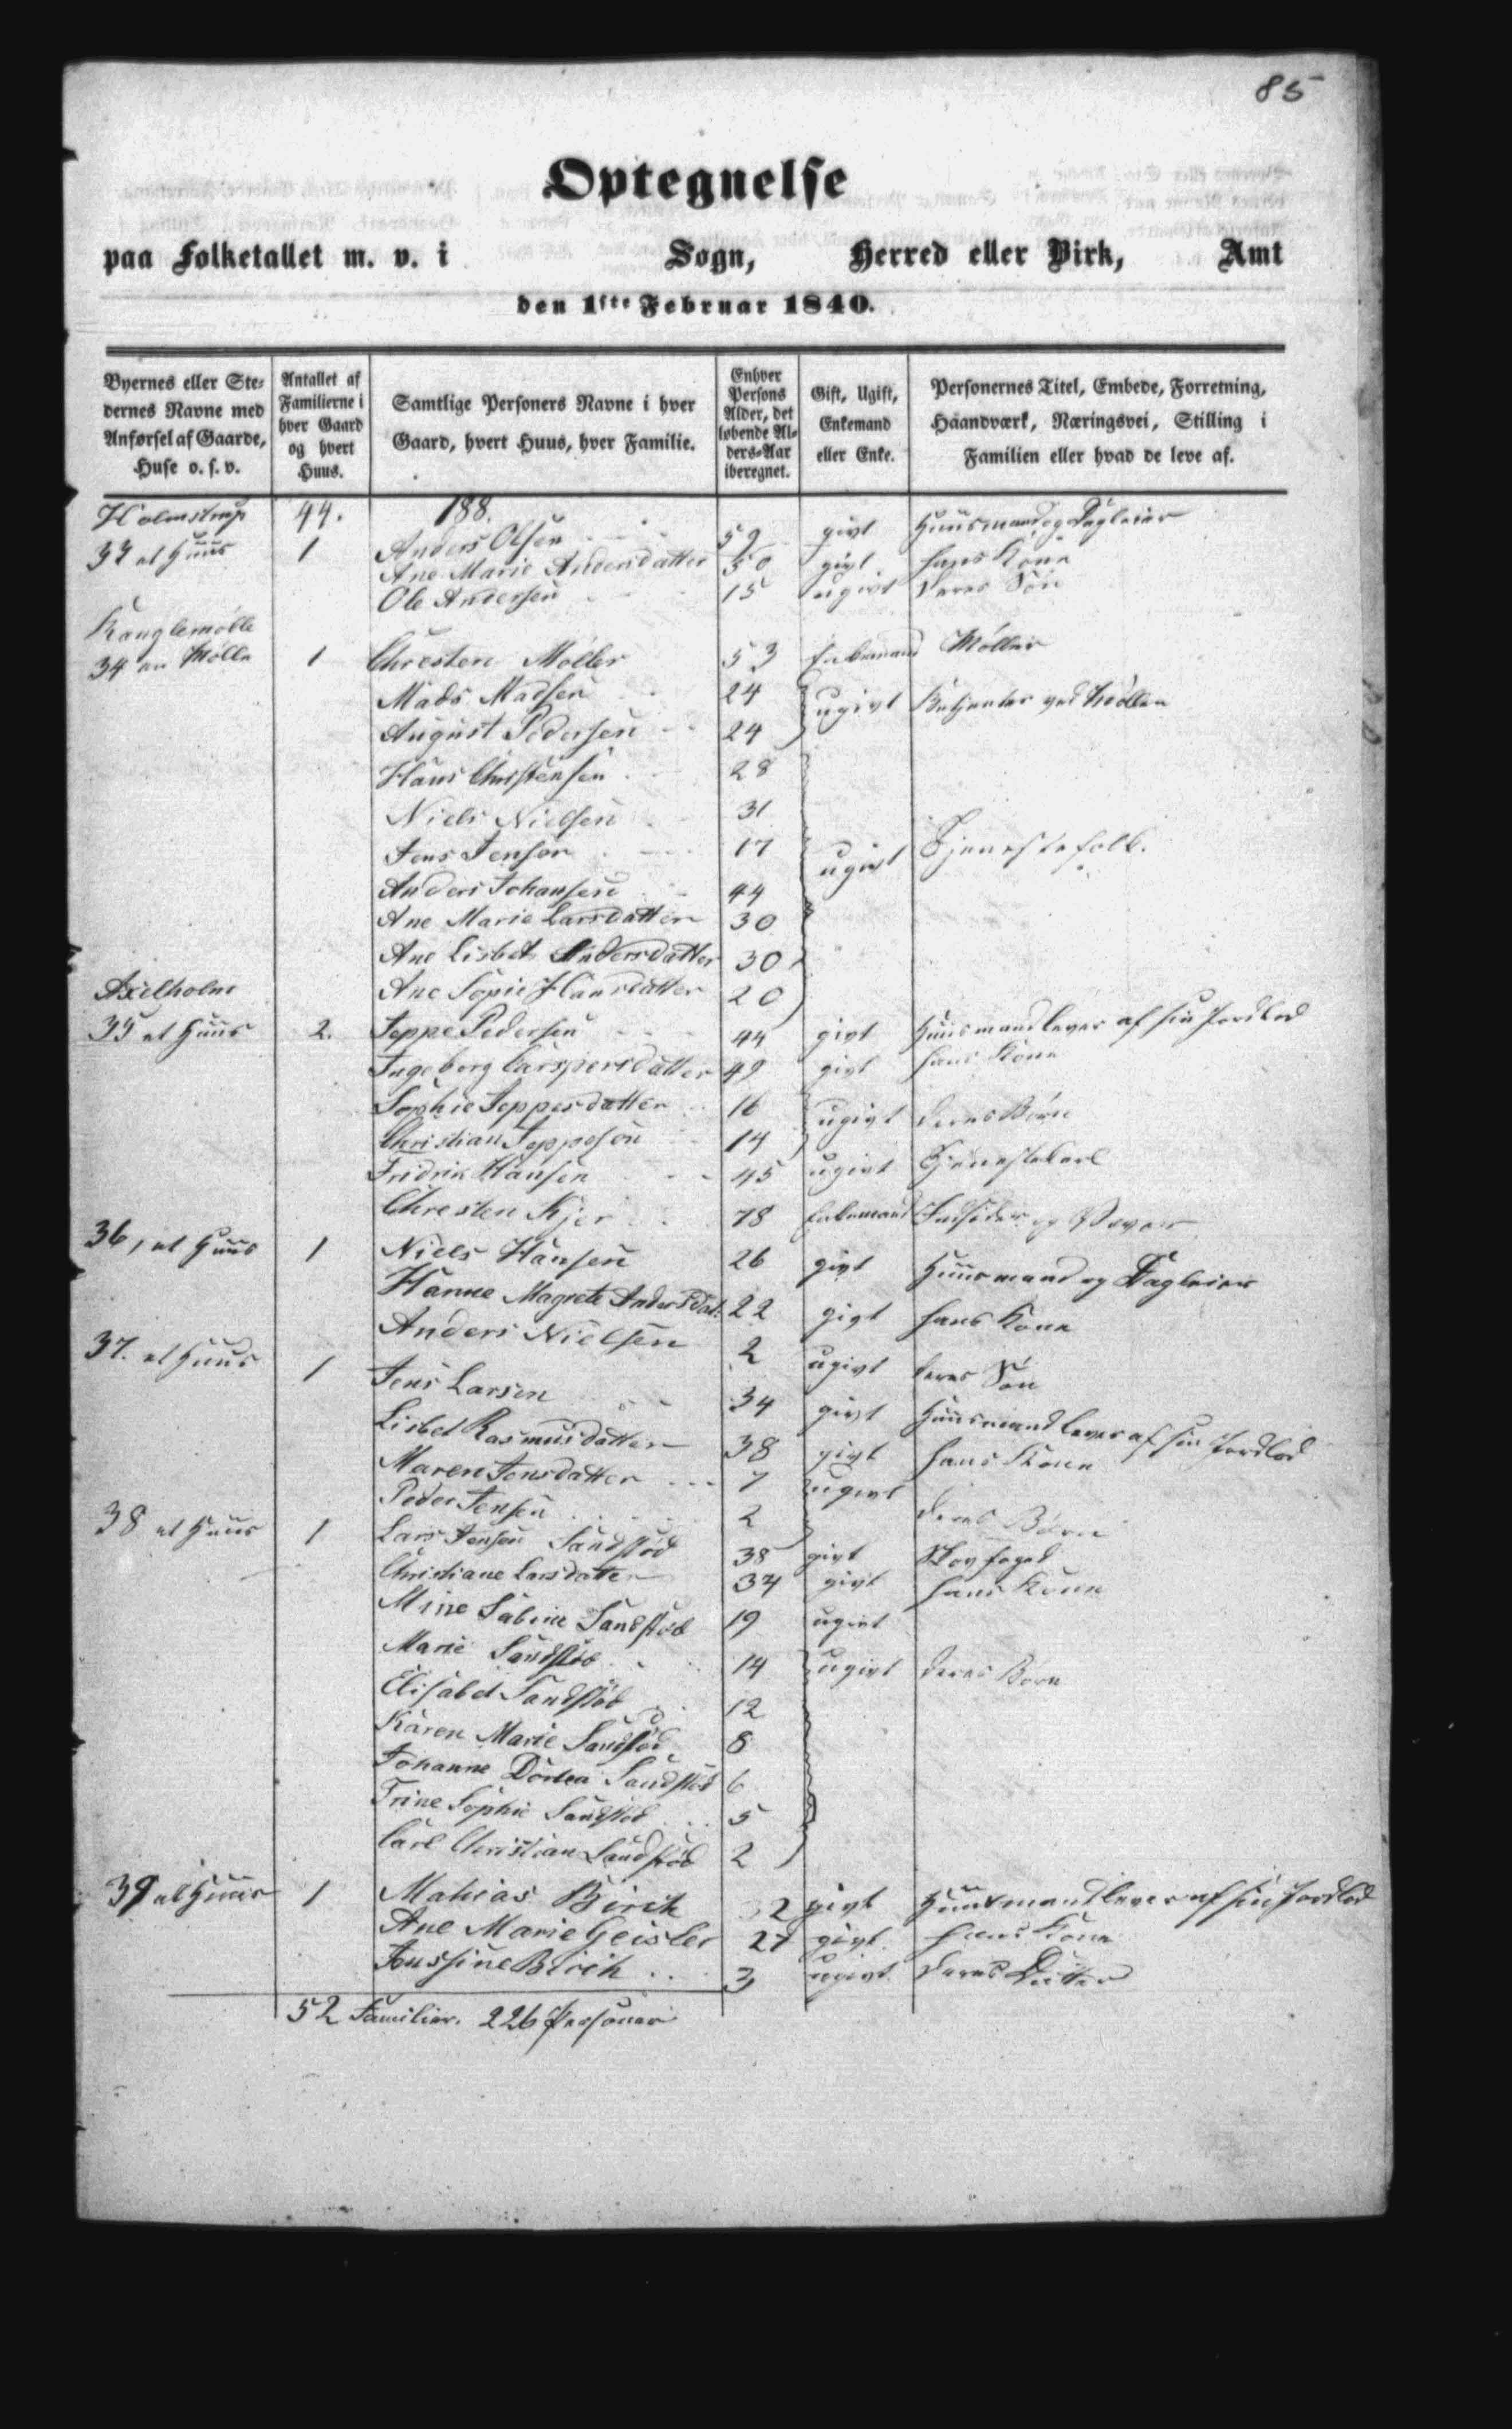 85
Optegnelse
paa Folketallet m. v. i Sogn, Herred eller Birk, Amt
den 1ste Februar 1840.
Byernes eller Stedernes Navne med Anførsel af Gaarde, Huse o. s. v.
Antallet af Familierne i hver Gaard og hvert Huus.
Samtlige Personers Navne i hver Gaard, hvert Huus, hver Familie.
Enhver Persons Alder, det løbende Alders-Aar iberegnet.
Gift, Ugift, Enkemand eller Enke.
Personernes Titel, Embede, Forretning, Haandværk, Næringsvei, Stilling i Familien eller hvad de leve af.
Holmstrup 44. 188.
33 et Huus 1 Anders Olsen 59 givt Huusmand og Dagleier
Ane Marie Andersdatter 50 givt hans Kone
Ole Andersen 15 ugivt deres Søn
Kanglemølle
34 en Mølle 1 Christen Møller 53 Enkemand Møller
Mads Madsen 24 ugivt Betjenter ved Møllen
August Pedersen 24
Hans Christensen 28
Niels Nielsen 31
Jens Jensen 17 ugivt Tjenestefolk.
Anders Johansen 44
Ane Marie Larsdatter 30
Ane Lisbet Andersdatter 30
Axelholm Ane Sopie Hansdatter 20
35 et Huus 2. Jeppe Pedersen 44 givt Huusmand lever af sin Jordlod
Ingeborg Carspersdatter 49 givt hans Kone
Sophie Jeppesdatter 16 ugivt deres Børn
Christian Jeppesøn 14
Fridrik Hansen 45 ugivt Tjenestekarl
Christen Kjer 78 Enkemand Indsidder og Væver
36, et Huus 1 Niels Hansen 26 givt Huusmand og Dagleier
Hanne Magrete Andersdat: 22 givt hans Kone
Anders Nielsen 2 ugivt deres Søn
37. et Huus 1 Jens Larsen 34 givt Huusmand lever af sin Jordlod
Lisbet Rasmusdatter 38 givt hans Kone
Maren Jensdatter 7 ugivt
Peder Jensen 2 deres Børn
38 et Huus 1 Lars Jensen Sandstød 38 givt Skovfoged
Christiane Larsdatter 37 givt hans Kone
Mine Sabine Sandstød 19 ugivt
Marie Sandstød 14 ugivt deres Børn
Elisabet Sandstød 12
Karen Marie Sandstød 8
Johanne Dortea Sandstød 6
Trine Sophie Sandstød 5
Carl Christian Sandstød 2
39 et Huus 1 Mathias Birch 32 givt Huusmand lever af sin Jordlod
Ane Marie Geisler 27 givt hans Kone
Birch 3 ugivt deres Datter
52 Familier. 226 Personer